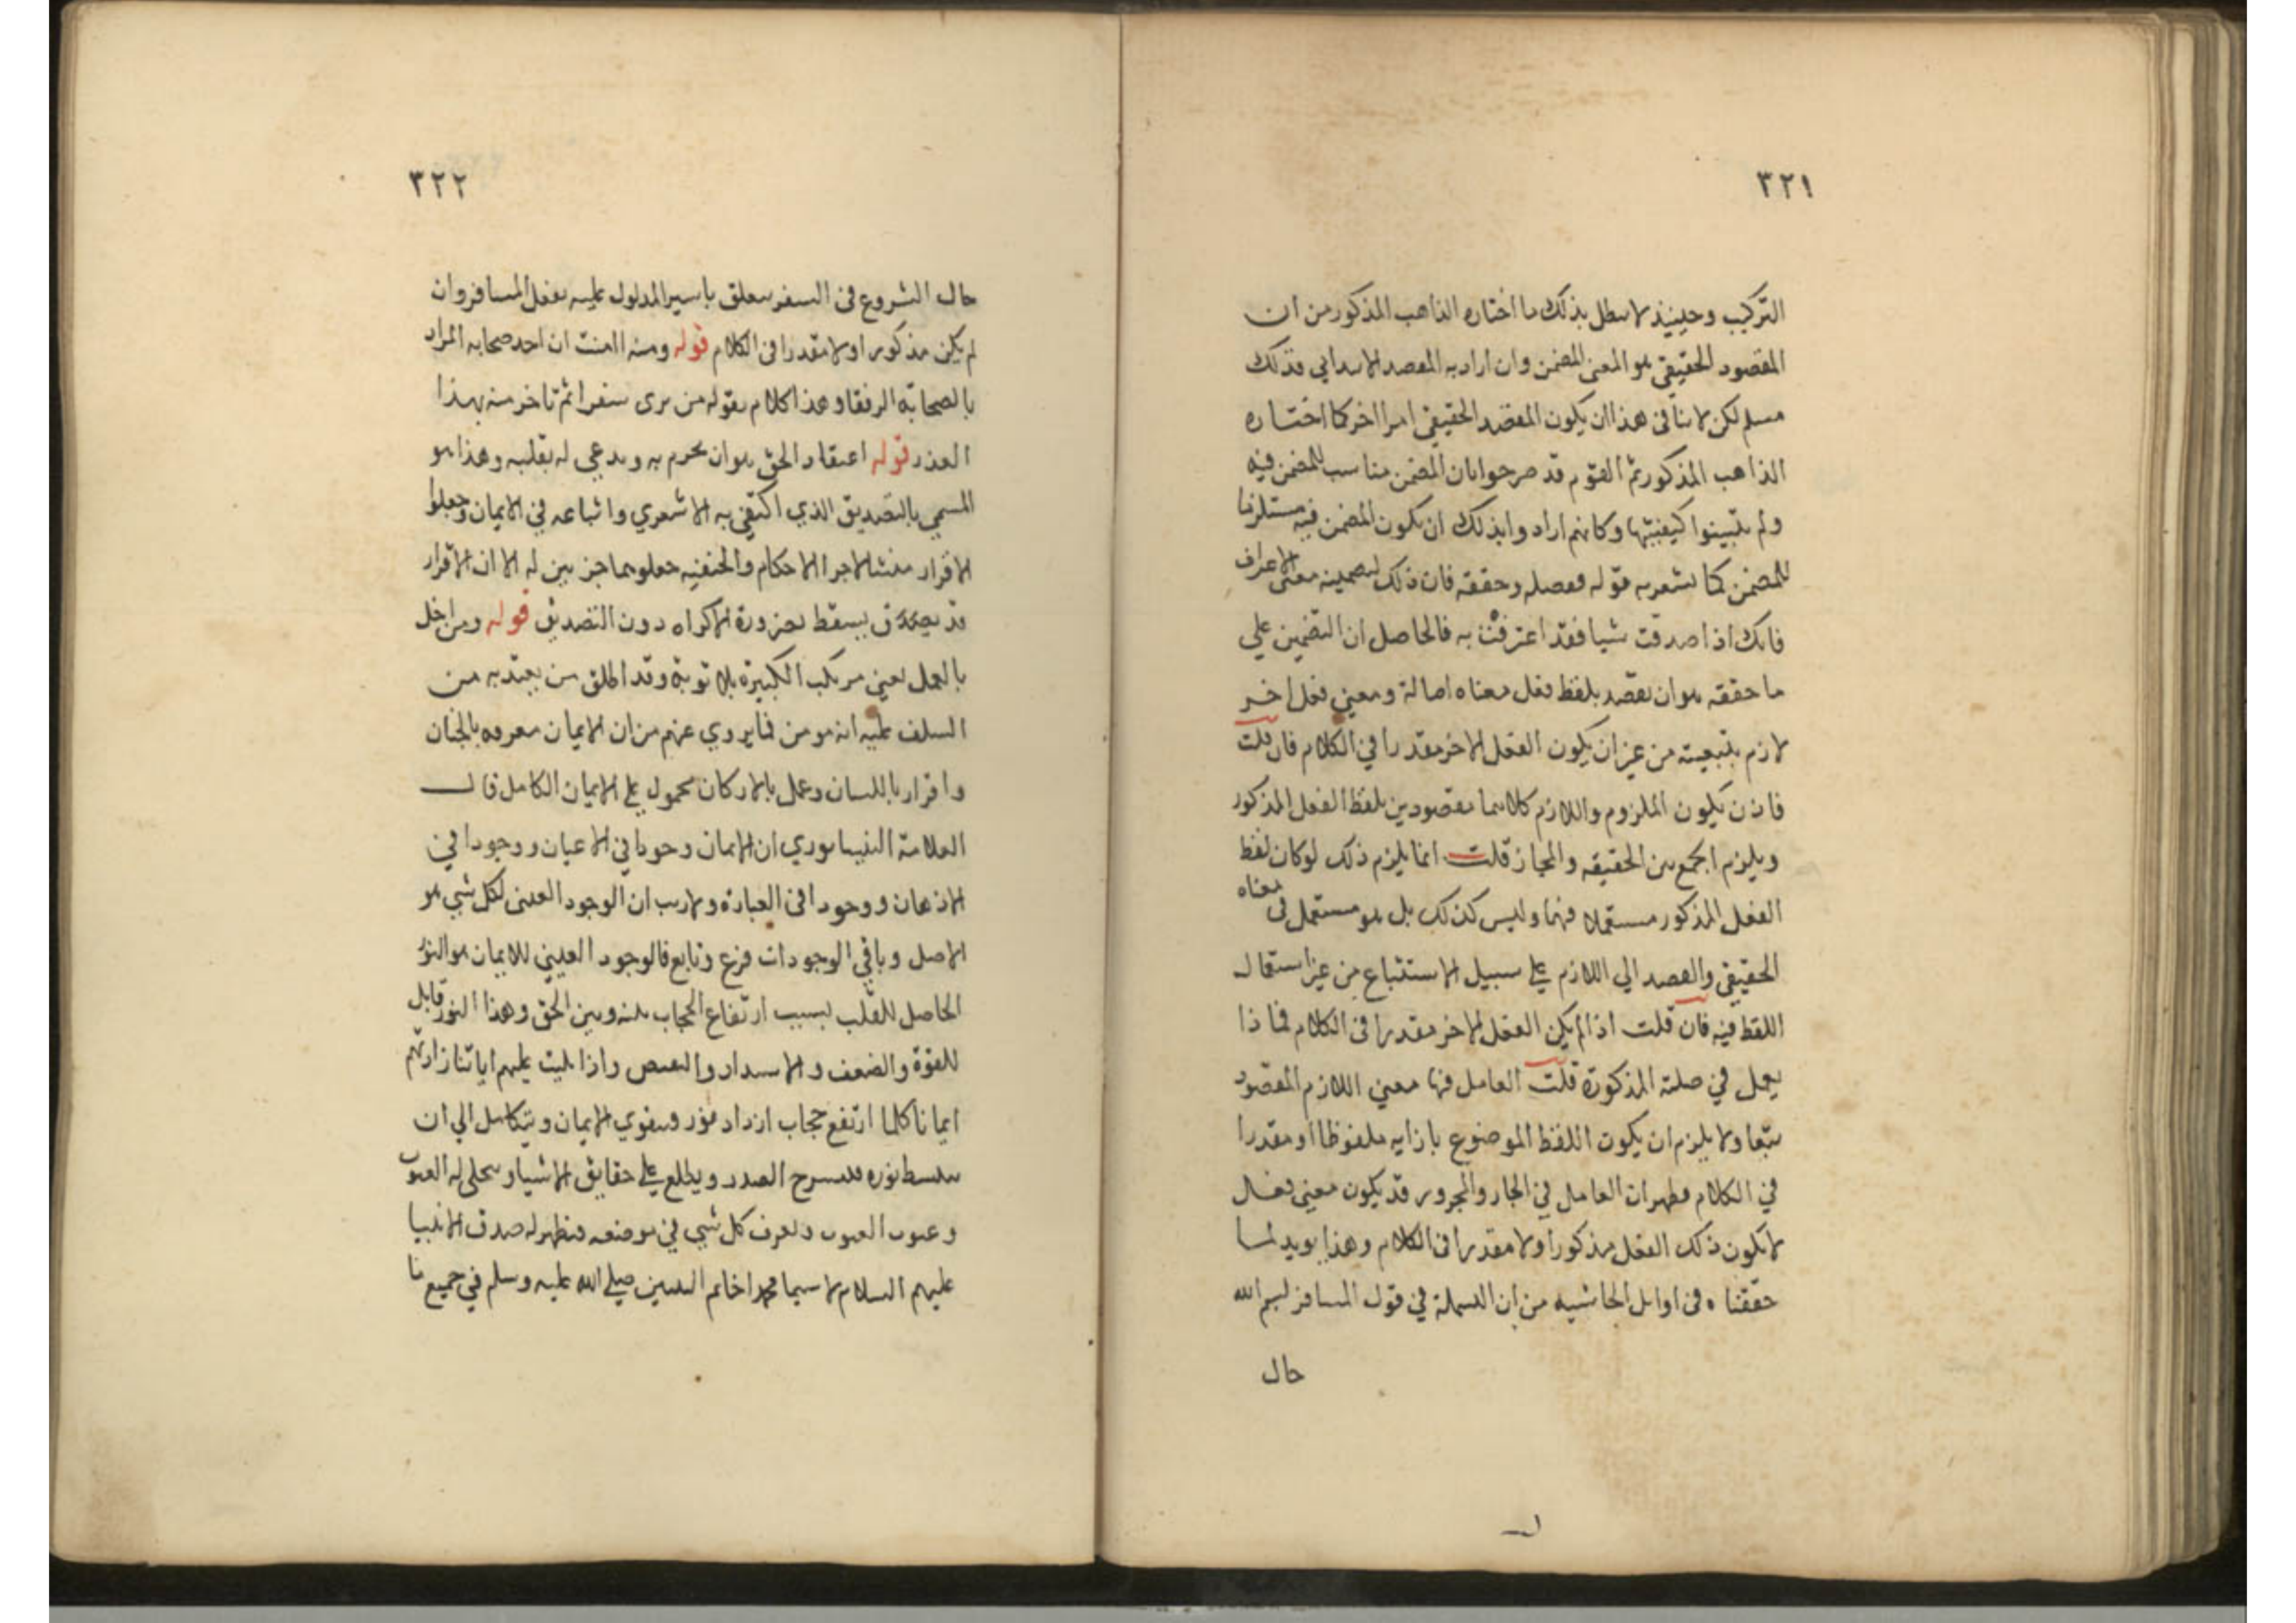 ٣٢١
التركيب وحينيذ لا يبطل بذلك ما اختاره الذاهب المذكور من ان
المقصود الحقيقي هو المعنى المضمن وان اراد به المقصد الابتدايي فذلك
مسلم لكن لا ينافى هذا ان يكون المقصد الحقيقي امرا اخر كما اختاره
الذاهب المذكور ثم القوم قد صرحوا بان المضمن مناسب للمضمن فيه
ولم يبينوا كيفيتها وكانهم ارادوا بذلك ان يكون المضمن فيه مستلزما
للمضمن كما يشعر به قوله فصله وحققه فان ذلك لتضمينه معنى الاعتراف
فانك اذا صدقت شيا فقد اعترفت به فالحاصل ان التضمين على
ما حققه هو ان يقصد بلفظ فعل معناه اصالة ومعنى فعل اخر
لازم بتبعيته من غير ان يكون الفعل الاخر مقدرا في الكلام فان قلت
فاذن يكون الملزوم واللازم كلاهما مقصودين بلفظ الفعل المذكور
ويلزم الجمع بين الحقيقه والمجاز قلت انما يلزم ذلك لو كان لفظ
الفعل المذكور مستعملا فيهما وليس كذلك بل هو مستعمل فى معناه
الحقيقي والقصد الي اللازم على سبيل الاستتباع من غير استعمال
اللفظ فيه فان قلت اذا لم يكن الفعل الاخر مقدرا فى الكلام فما ذا
يعمل في صلته المذكورة قلت العامل فيها معني اللازم المقصود
تبعا ولا يلزم ان يكون اللفظ الموضوع بازايه ملفوظا او مقدرا
في الكلام فظهر ان العامل في الجار والمجرور قد يكون معنى فعل
لا يكون ذلك الفعل مذكورا ولا مقدرا فى الكلام وهذا يويد لما
حققناه فى اوايل الحاشيه من ان البسملة في قول المسافر بسم الله
حال
٣٢٢
حال الشروع فى السفر متعلق باسير المدلول عليه بفعل المسافر وان
لم يكن مذكورا ولا مقدرا فى الكلام قوله ومنه ان احد صحابه المراد
بالصحابة الرفقا وهذا كلام يقوله من يرى سفرا ثم تاخر منه بهذا
العذر قوله اعتقاد الحق هو ان يجزم به ويدعى له بقلبه وهذا هو
المسمي بالتصديق الذي اكتفي به الاشعري واتباعه في الايمان وجعلوا
الاقرار منشا لاجرا الاحكام والحنفيه جعلوهما جزيين له الا ان الاقرار
قد يسقط بضرورة الاكراه دون التصديق قوله ومن اخل
بالعمل يعنى مرتكب الكبيرة بلا توبة وقد اطلق من يعتد به من
السلف عليه انه مومن فما يروي عنهم من ان الايمان معرفه بالجنان
واقرار باللسان وعمل بالاركان محمول على الايمان الكامل قال
العلامة النيسابوري ان للايمان وجودا في الاعيان ووجودا في
الاذهان ووجودا فى العبارة ولا ريب ان الوجود العينى لكل شي هو
الاصل وباقي الوجودات فرع وتابع فالوجود العيني للايمان هو النور
الحاصل للقلب بسبب ارتفاع الحجاب بينه وبين الحق وهذا النور قابل
للقوة والضعف والاشتداد والنقص واذا تليت عليهم اياتنا زادتهم
ايمانا كلما ارتفع حجاب ازداد نور فيتقوي الايمان ويتكامل الي ان
ينبسط نوره فينشرح الصدر ويطلع على حقايق الاشيا ويتجلى له الغيوب
وغيوب الغيوب ويعرف كل شي في موضعه فيظهر له صدق الانبيا
عليهم السلام لا سيما محمدا خاتم النبيين صلى الله عليه وسلم في جميع ما